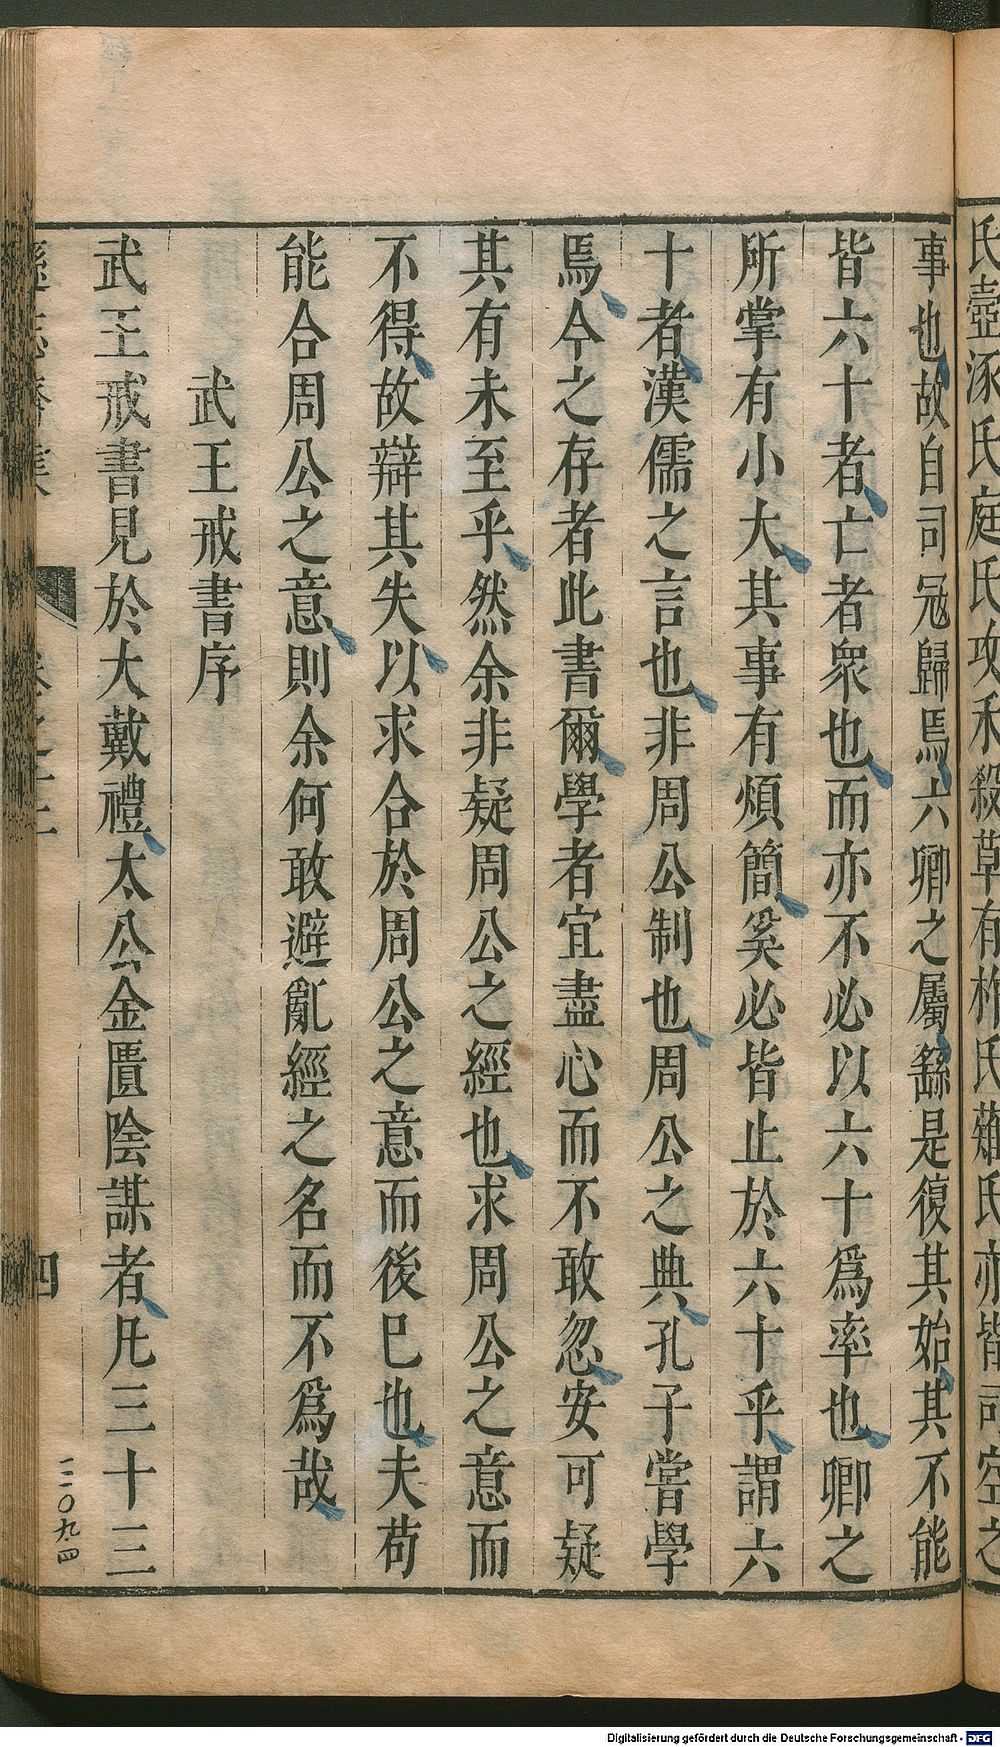 氏壺涿氏庭氏攻禾殺草有柞氏薙氏亦皆司空之
事也故自司冦歸焉六卿之屬繇是復其始其不能
皆六十者亡者衆也而亦不必以六十爲率也卿之
所掌有小大其事有煩簡奚必皆止於六十乎謂六
十者漢儒之言也非周公制也周公之典孔子嘗學
焉今之存者此書爾學者宜盡心而不敢忽安可疑
其有未至乎然余非疑周公之經也求周公之意而
不得故辯其失以求合於周公之意而後已也夫苟
能合周公之意則余何敢避亂經之名而不爲哉
武王戒書序
武王戒書見於大戴禮太公金匱陰謀者凡三十三
卷之二
四
一二〇九四
Digitalisierung gefördert durch die Deutsche Forschungsgemeinschaft - DFG